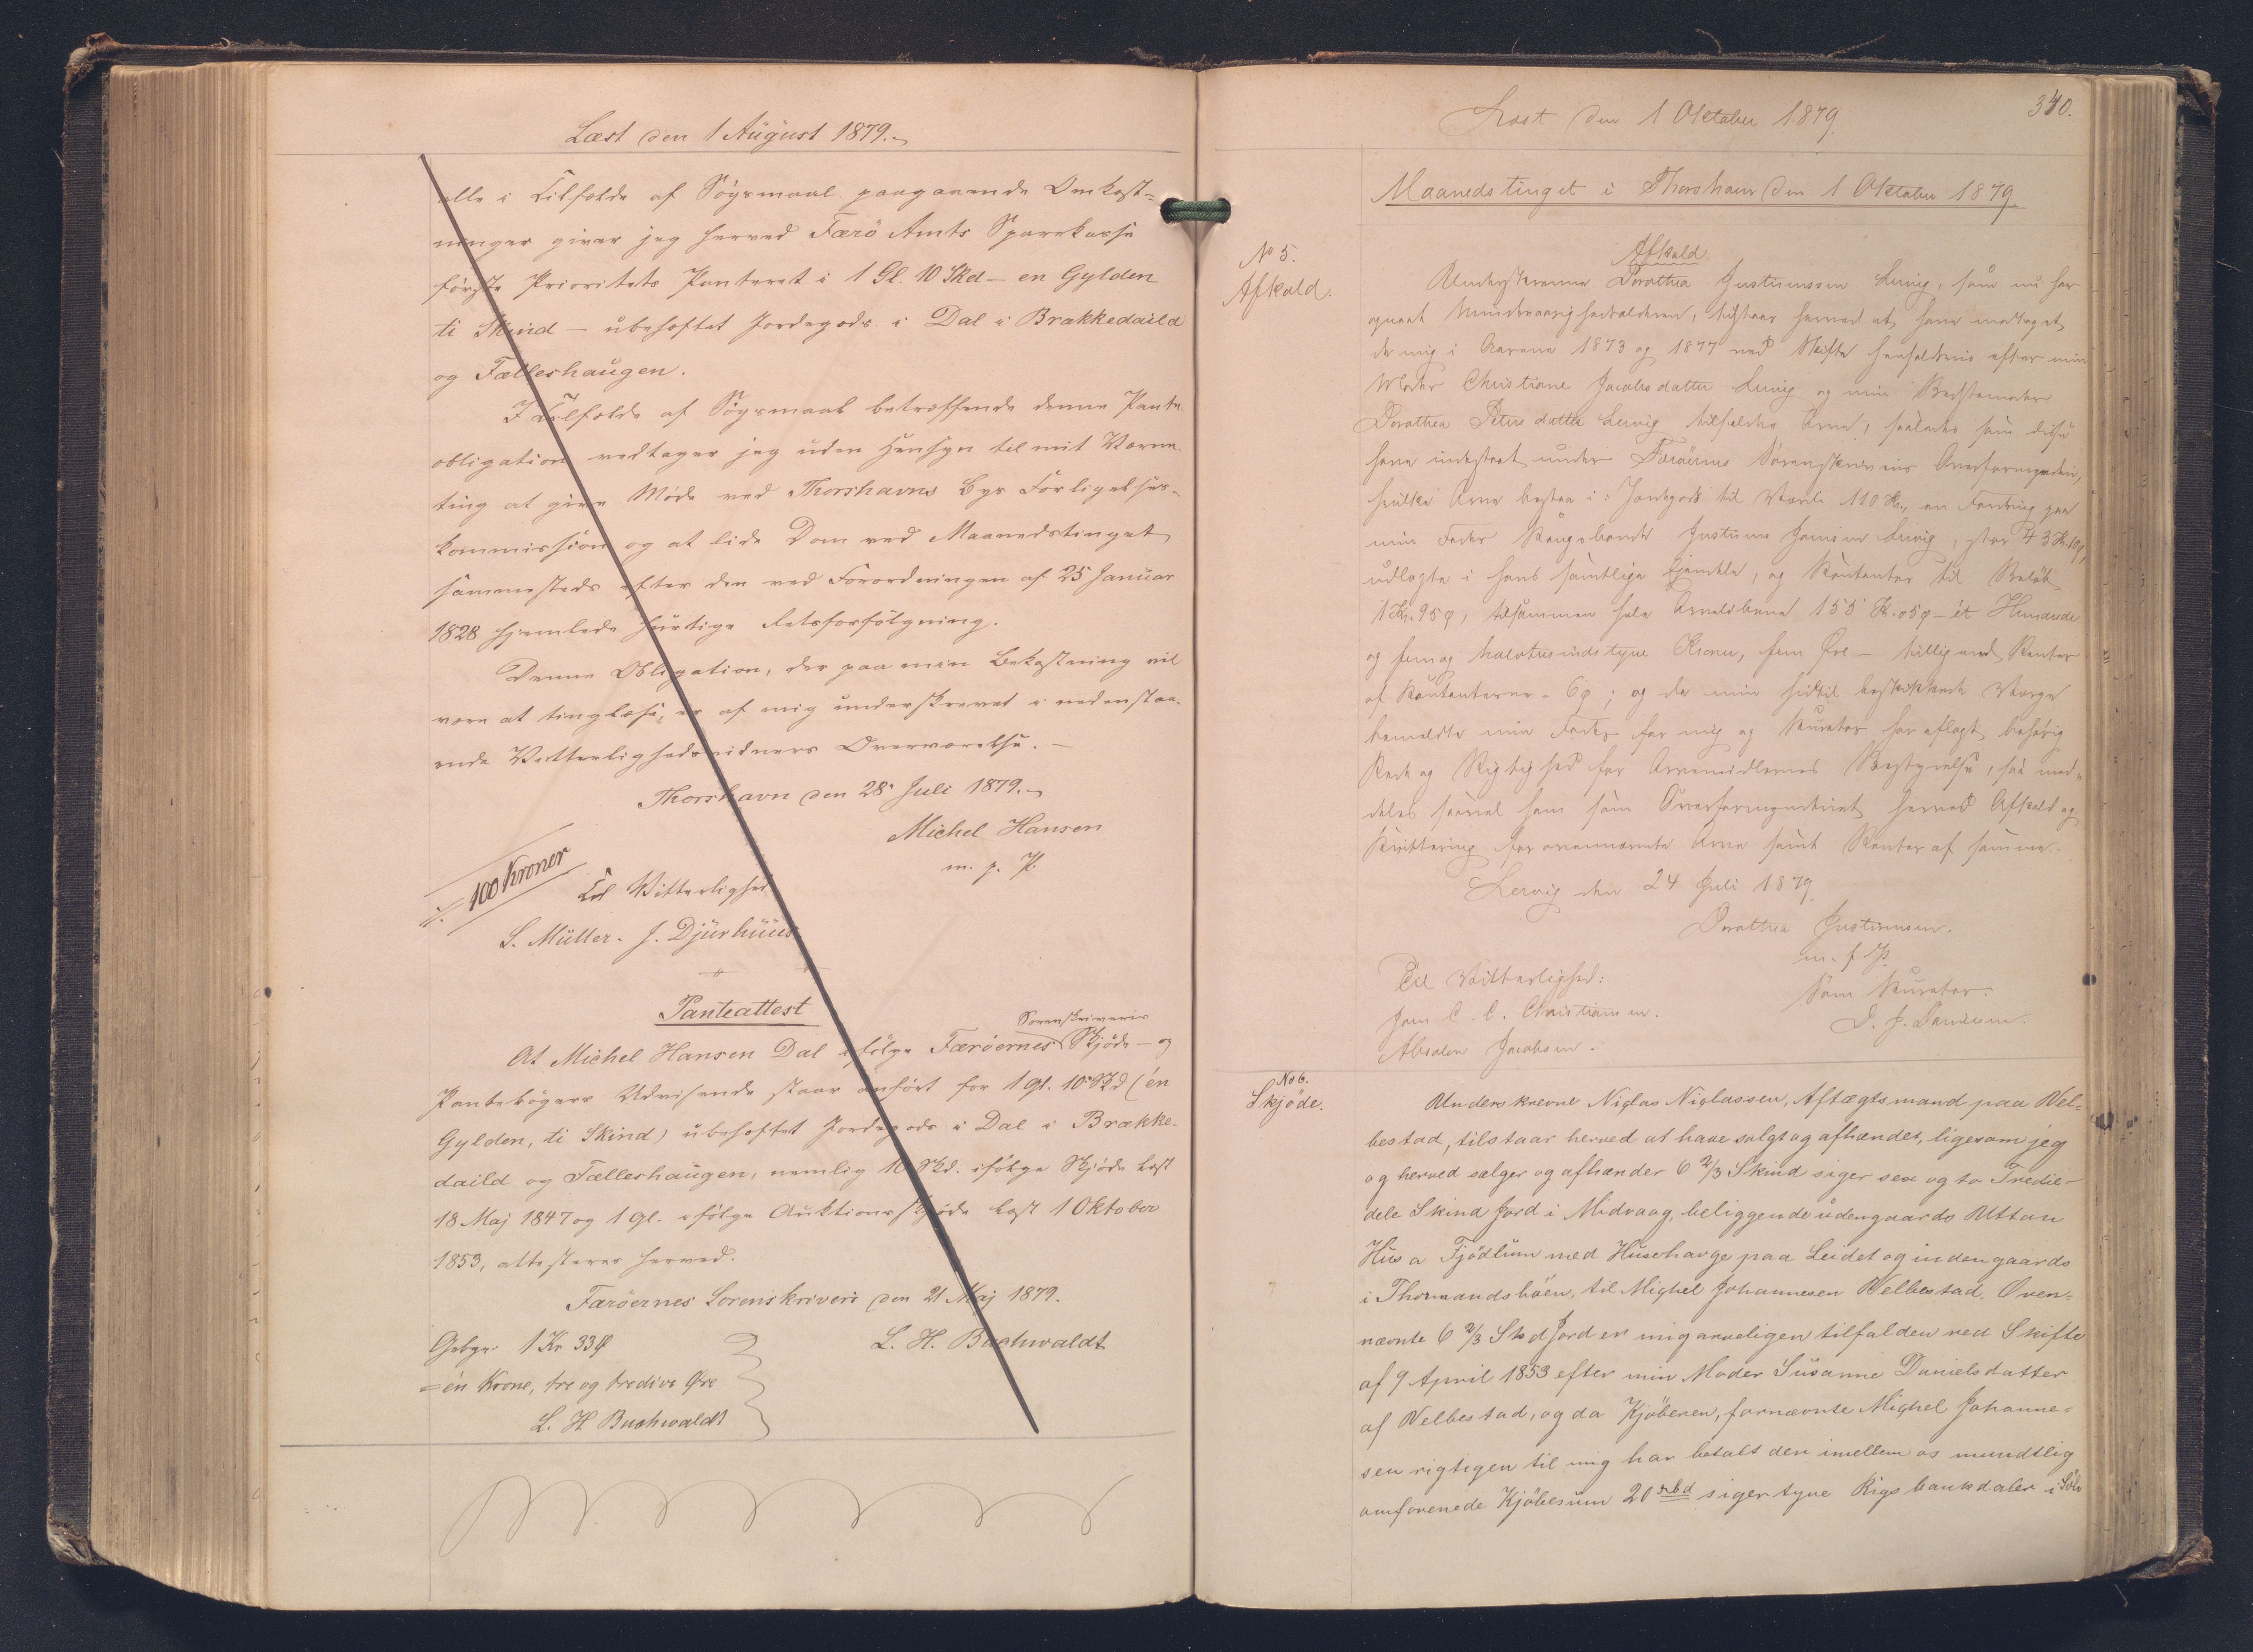 Læst den 1 August 1879.
alle i Tilfælde af Søgsmaal paagaaende Omkost-
ninger giver jeg herved Færö Amts Sparekasse
förste Prioritets Panteret i 1 Gl. 10 Skd — en Gylden
ti Skind — ubehæftet Jordegods i Dal i Brakkedaild
og Fælleshaugen.
I Tilfælde af Søgsmaal betræffende denne Pante
obligation vedtager jeg uden Hensyn til mit Værne-
ting at give Møde ved Thorshavns Byes Forligelses-
kommission og at lide Dom ved Maanedstinget
sammesteds efter den ved Forordningen af 25 Januar
1828 hjemlede hurtige Retsforfölgning.
Denne Obligation, der paa min Bekostning vil
være at tinglæse, er af mig underskrevet i nedenstaa-
ende Vitterlighedsvidners Overværelse. —
Thorshavn den 28. Juli 1879.
Michel Hansen
m. p. P.
100 Kroner
Til Vitterlighed
S. Müller. J. Djürhüüs
Panteattest
Sorenskriveris
At Michel Hansen Dal ifölge Færöernes Skjöde — og
Pantebögers Udvisende staar anfört for 1 gl. 10 Skd (én
Gylden, ti Skind) ubehæftet Jordegods i Dal i Brække-
daild og Fælleshaugen, nemlig 10 Skd. ifölge Skjöde læst
18 Maj 1847 og 1 gl. ifölge Auktionsskjöde læst 1 Oktober
1853, attesteres herved.
Færöernes Sorenskriveri den 21 Maj 1879.
L. H. Buchwaldt
Gebyr 1 Kr 33 Ø
= én Krone, tre og tredive Øre
L. H Buchwaldt
Læst den 1 Oktober 1879
340.
Maanedstinget i Thorshavn den 1 Oktober 1879.
No 5.
Afkald.
Afkald.
Underskrevne Dorothea Justinussen Lervig, som nu har
opnaaet Myndighedsalderen, tilstaar herved at have modtaget
de mig i Aarene 1873 og 1877 ved Skifte henholdsvis efter min
Moder Christiane Jacobsdatter Lervig og min Bedstemoder
Dorothea Petersdatter Lervig tilfaldne Arve, saaledes som disse
have indestaaet under Færöernes Sorenskrivers Overformynderi,
hvilke Arve bestaa i: Jordegods til Værdi 110 Kr., en Fordring paa
min Fader Kongsbonde Justinus Joensen Lervig, stor 43 Kr. 10 ø,
udlagte i hans samtlige Ejendele, og Kontanter til Beløb
1 Kr. 95 ø, tilsammen hele Arvelodderne 155 Kr. 05 ø — ét Hundrede
og fem og halvtredsindstyve Kroner, fem Øre — tilligemed Renter
af Kontanterne - 6 ø; og da min hidtil beskikkede Værge
bemeldte min Fader for mig og Kurator har aflagt behørig
Rede og Rigtighed for Arvemidlernes Bestyrelse, saa med-
deles saavel ham som Overformynderiet herved Afkald og
Kvittering for ovennævnte Arve samt Renter af samme.
Lervig den 24 Juli 1879
Dorothea Justinussen.
m. f. P.
Til Vitterlighed:
Som Kurator:
Joen C. C. Christiansen.
Absalon Jacobsen.
No 6.
Skjöde.
Underskrevne Niglas Niglassen, Aftægtsmand paa Vel-
bestad, tilstaar herved at have solgt og afhændet, ligesom jeg
og herved sælger og afhænder 6 2/3 Skind siger sex og to Tredie-
dele Skind Jord i Midvaag, beliggende udengaards Uttan
Hus a Fjödlum med Husehauge paa Leidet og indengaards
i Thormandsböen, til Mighel Johannesen Velbestad. Oven-
nævnte 6 2/3 Skd Jord er mig arveligen tilfalden ved Skifte
af 9 April 1853 efter min Moder Susanne Danielsdatter
af Velbestad, og da Kjöberen, fornævnte Mighel Johanne-
sen rigtigen til mig har betalt den imellem os mundtlig
omforenede Kjöbesum 20 rbd siger tyve Rigsbankdaler i Sölv